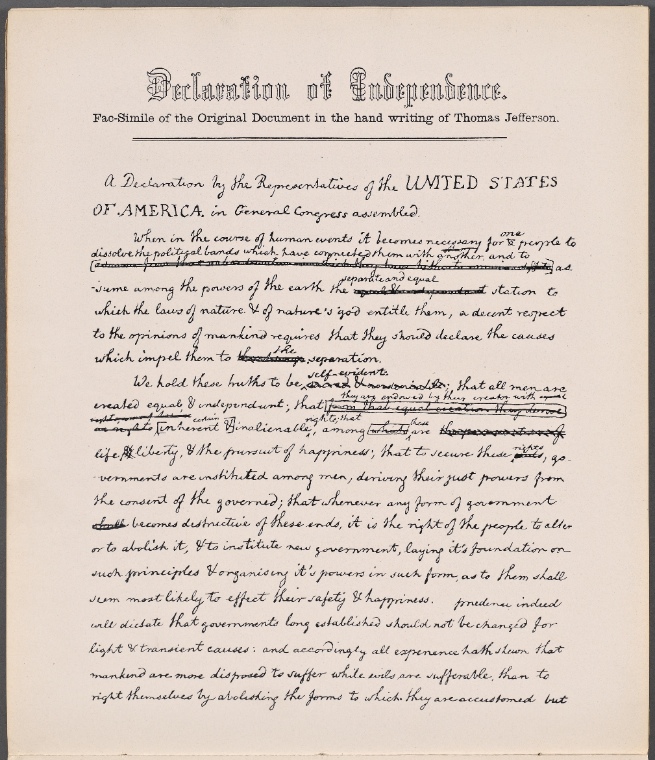 Declaration of Independence.
Fac-Simile of the Original Document in the hand writing of Thomas Jefferson.
A Declaration by the Representatives of the UNITED STATES
OF AMERICA. in General Congress assembled.
When in the course of human events it becomes necessary for one people to
dissolve the political bands which have connected them with another, and to
as-
-sume among the powers of the earth the separate and equal station to
which the laws of nature & of nature's god entitle them, a decent respect
to the opinions of mankind requires that they should declare the causes
which impel them to the separation.
We hold these truths to be self-evident; that all men are
they are endowed by their creator with
created equal & independent; that from that equal creation they derive
rights; that these
in inherent & certain inalienable, among which are
life, & liberty, & the pursuit of happiness; that to secure these rights, go-
-vernments are instituted among men, deriving their just powers from
the consent of the governed; that whenever any form of government
becomes destructive of these ends, it is the right of the people to alter
or to abolish it, & to institute new government, laying it's foundation on
such principles & organising it's powers in such form, as to them shall
seem most likely to effect their safety & happiness. prudence indeed
will dictate that governments long established should not be changed for
light & transient causes: and accordingly all experience hath shewn that
mankind are more disposed to suffer while evils are sufferable, than to
right themselves by abolishing the forms to which they are accustomed but